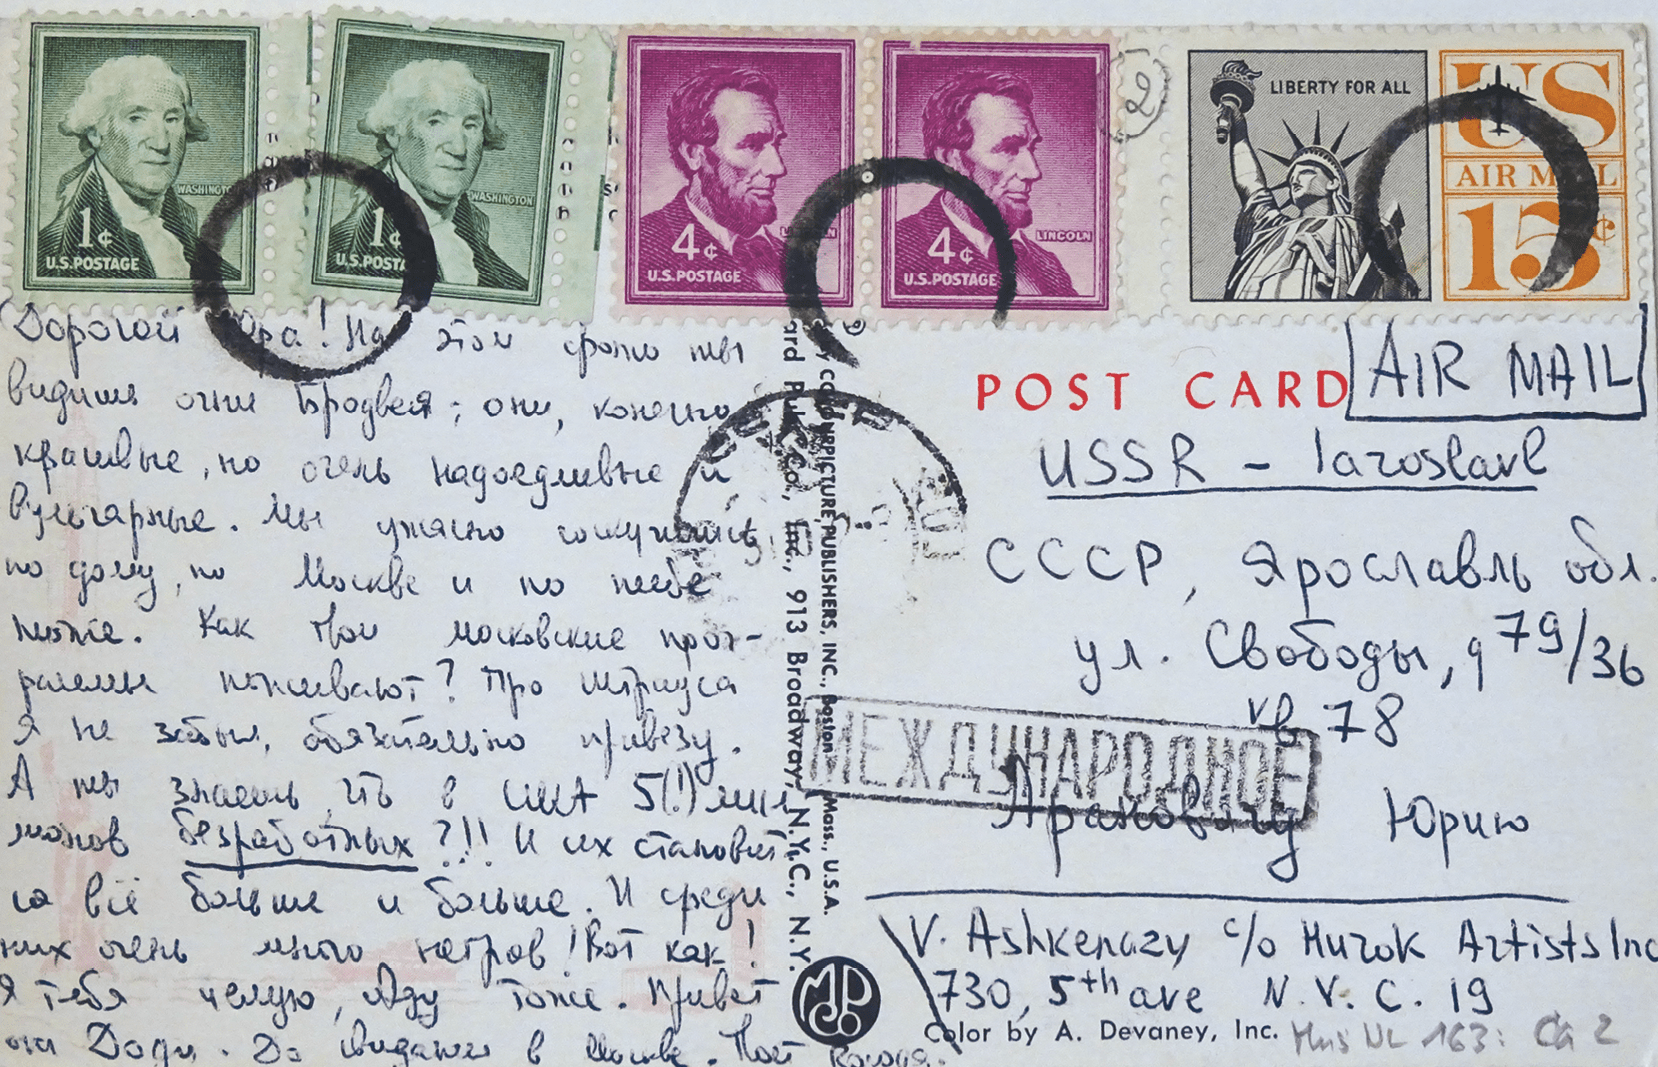 WASHINGTON
1¢
U.S. POSTAGE
WASHINGTON
1¢
U.S. POSTAGE
4¢
U.S. POSTAGE
LINCOLN
4¢
U.S. POSTAGE
LIBERTY FOR ALL
US
AIR MAIL
15¢
Дорогой Юра! На этом фото ты
видишь огни Бродвея; они, конечно
красивые, но очень надоедливые и
вульгарные. Мы ужасно соскучились
по дому, по Москве и по тебе
тоже. Как твои московские прог-
раммы поживают? Про Штрауса
я не забыл, обязательно привезу.
А ты знаешь, что в США 5(!) мил
лионов безработных?!! И их становит
ся всё больше и больше. И среди
них очень много негров! Вот как!
Я тебя целую, Аду тоже. Привет
от Доди. До свидания в Москве. Твой Володя.
POST CARD
AIR MAIL
USSR - Iaroslavl
СССР, Ярославль обл.
ул. Свободы, 79/36
кв 78
МЕЖДУНАРОДНОЕ
Арановичу Юрию
V. Ashkenazy c/o Hurok Artists Inc
730, 5th ave N.Y.C. 19
Color by A. Devaney, Inc.
Mus NL 163: Ca 2
COLOURPICTURE PUBLISHERS, INC., Boston Mass., U.S.A.
ard Pub. Co., Inc., 913 Broadway, N.Y.C., N.Y.